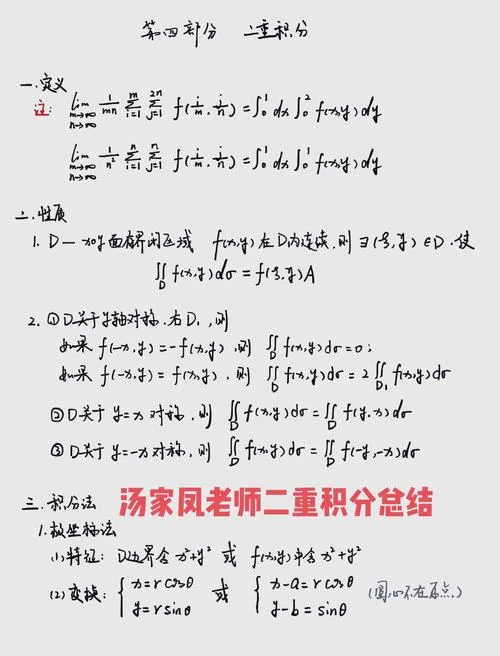 第四部分 二重积分
一.定义
注: lim m→∞ n→∞ 1/mn Σ_{i=1}^{m} Σ_{j=1}^{2n} f(i/m, j/n) = ∫₀¹dx∫₀² f(x,y)dy
lim m→∞ n→∞ 1/n² Σ_{i=1}^{n} Σ_{j=1}^{n} f(i/n, j/n) = ∫₀¹dx∫₀¹ f(x,y)dy
二.性质
1. D— xoy面有界闭区域 f(x,y)在D内连续,则∃(ξ,η)∈D,使
∬_D f(x,y)dσ = f(ξ,η)A
2. ①D关于y轴对称.右D₁,则
如果 f(-x,y)=-f(x,y),则 ∬_D f(x,y)dσ=0;
如果 f(-x,y)=f(x,y),则 ∬_D f(x,y)dσ=2∬_{D₁} f(x,y)dσ
②D关于 y=x 对称,则 ∬_D f(x,y)dσ=∬_D f(y,x)dσ
③D关于 y=-x 对称,则 ∬_D f(x,y)dσ=∬_D f(-y,-x)dσ
三.积分法
汤家凤老师二重积分总结
1.极坐标法
(1)特征: D边界含x²+y² 或 f(x,y)中含x²+y²
(2)变换: { x=rcosθ y=rsinθ 或 { x-a=rcosθ y-b=sinθ (圆心不在原点.)